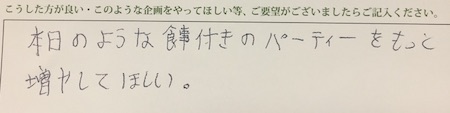 こうした方が良い・このような企画をやってほしい等、ご要望がございましたらご記入ください。
本日のような食事付きのパーティーをもっと
増やしてほしい。